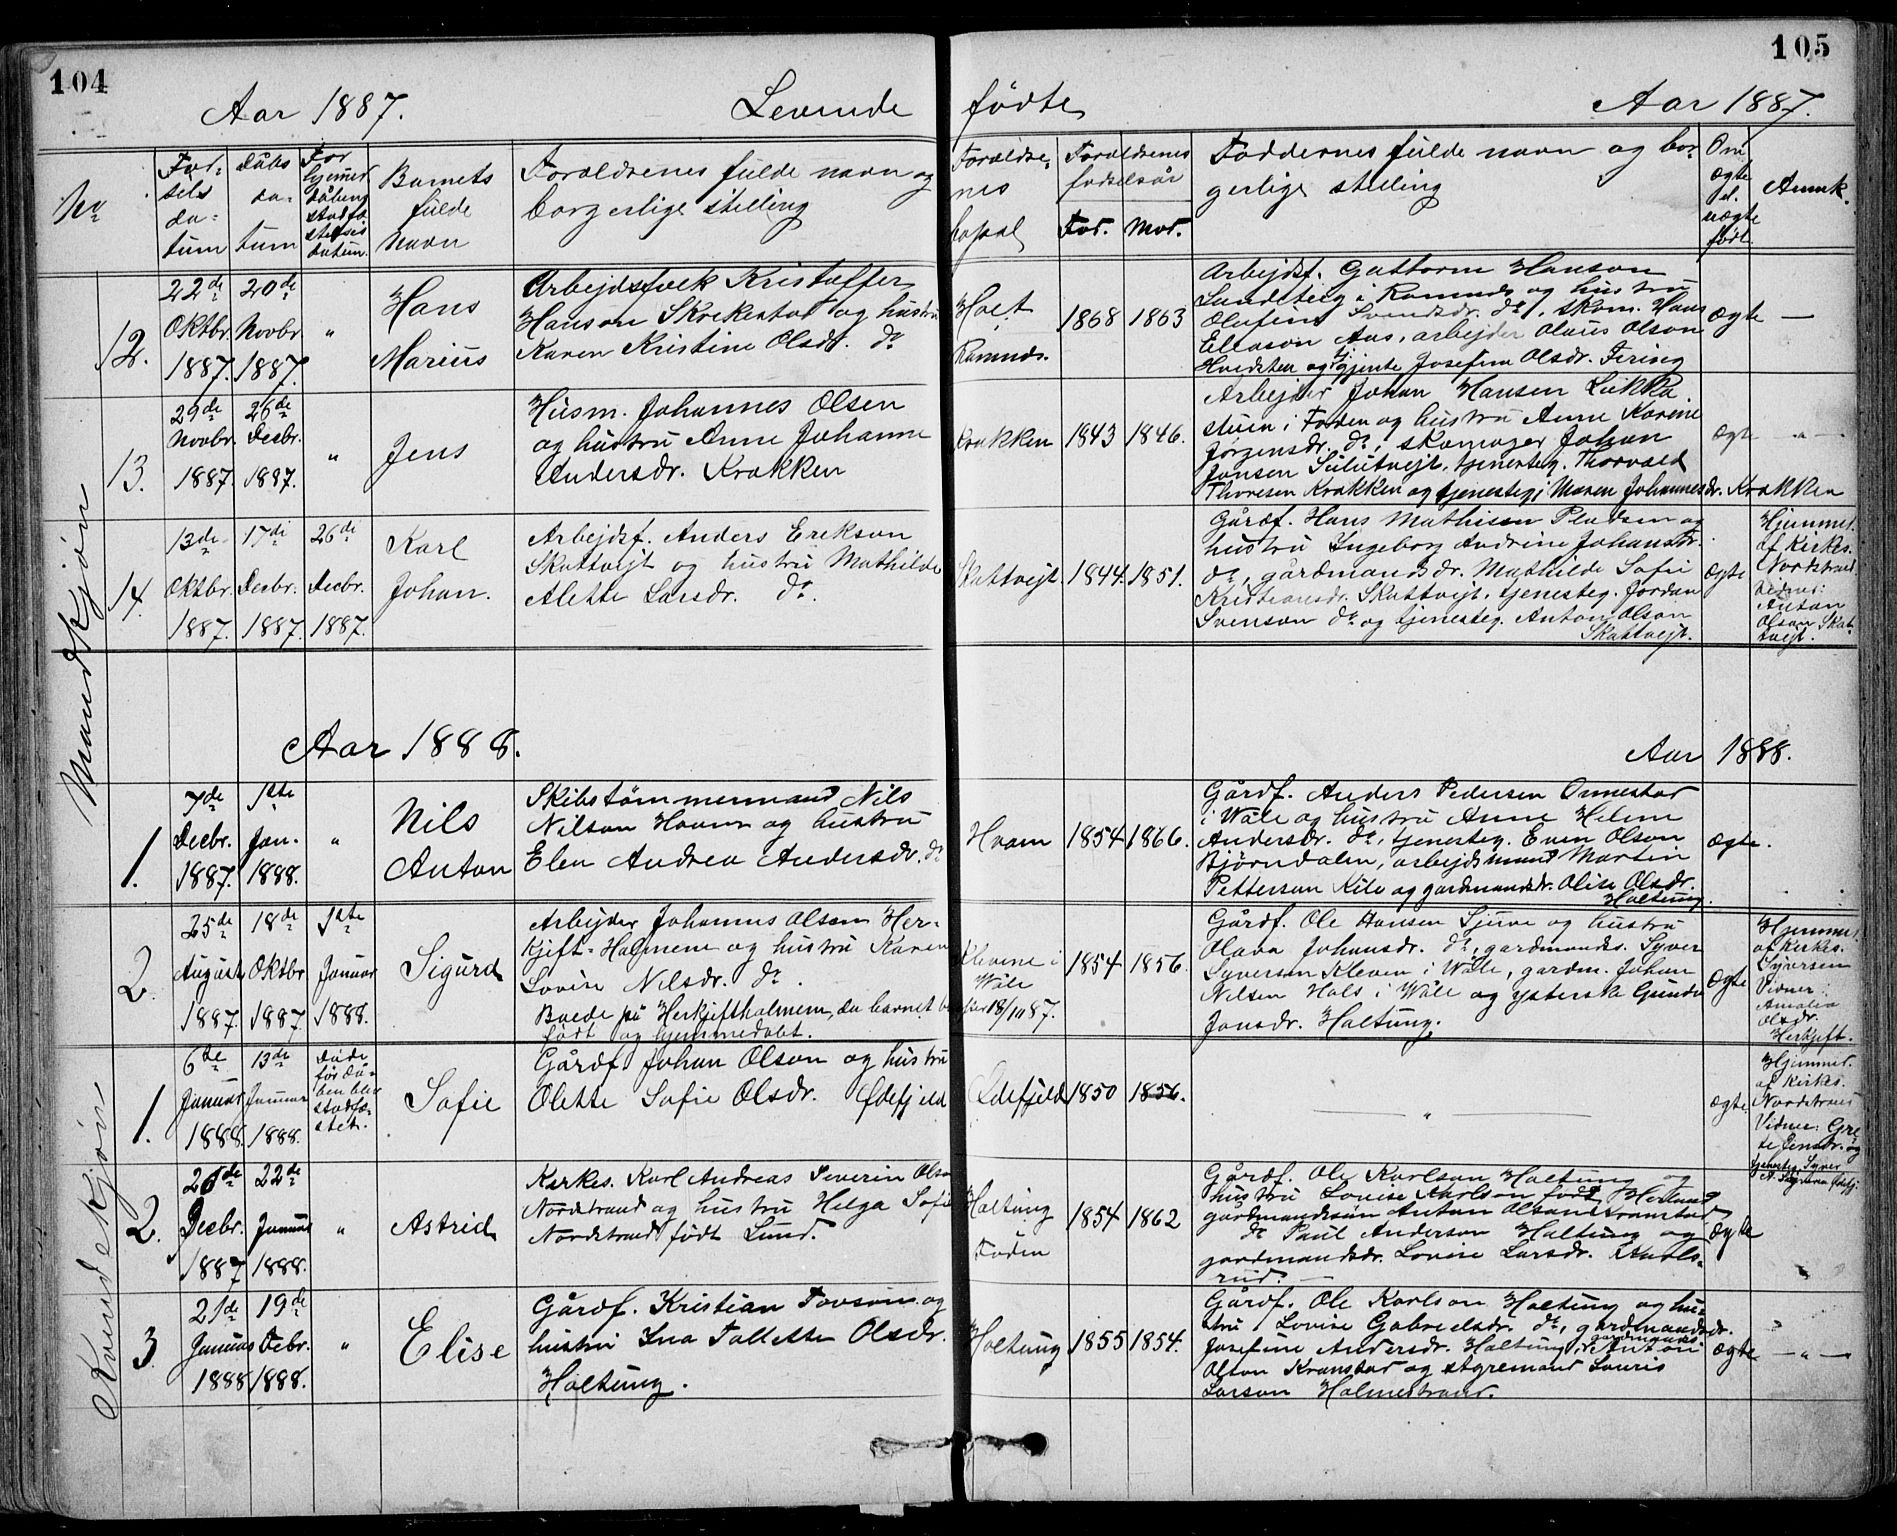 104
105
Aar 1887.
Levende
fødte
Aar 1887.
No
Fød-
sels
da-
tum
Dåbs
da-
tum
For
hjemmedåbens
stadfæ-
stelses
datum.
Barnets
fulde
navn
Forældrenes fulde navn og
borgerlige stilling
Forældre-
nes
bopæl
Forældrenes
fødselsår
Far.
Mor.
Faddernes fulde navn og bor-
gerlige stilling
Om
ægte
el.
uægte
født.
Anmk.
Mandkjøn
12.
22de
Oktbr.
1887.
20de
Novbr
1887.
"
Hans
Marius
Arbejdsfolk Kristoffer
Hanson Skrekestad og hustru
Karen Kristine Olsdr. do
Holt
Ramnds.
1868
1863
Arbejdsf. Guttorm Hanson
Sandteig i Ramnds og hustru
Olufine Svendsdr. do, skom. Hans
Eliason Aas, arbejder Olaus Olson
Hvidsten og tj.pigente Josefine Olsdr. Firing
ægte
—
13.
29de
Novbr.
1887.
26de
Decbr.
1887.
"
Jens
Husm. Johannes Olsen
og hustru Anne Johanne
Andersdr. Krakken
Krakken
1843
1846.
Arbejder Johan Hansen Løkka
stuen i Foden og hustru Anne Karine
Jørgensdr. do, skomager Johan
Jonsen Sulutvejt, tjenesteg. Thorvald
Thoresen Krakken og tjenestepige Maren Johannesdr. Krakken
ægte
— " —
14.
13de
Oktbr.
1887.
17de
Decbr.
1887.
26de
Decbr.
1887.
Karl
Johan.
Arbejdsf. Anders Erikson
Skattvejt og hustru Mathilde
Alette Larsdr. do.
Skattvejt
1844.
1851.
Gårdf. Hans Mathisen Pladsen og
hustru Ingeborg Andrine Johansdr.
do, gårdmandsdr. Mathilde Sofie
Kristiansdr. Skattvejt, tjenesteg. Jordan
Svenson do og tjenesteg. Anton Olson
Skattvejt.
ægte
Hjemmed.
af Kirkes.
Nordstrand
Vidner:
Anton
Olson Skat-
tvejt.
Aar 1888.
Aar 1888.
1.
7de
Decbr.
1887.
1ste
Jan.
1888.
"
Nils
Anton
Skibstømmermand Nils
Nilson Hvam og hustru
Elen Andrea Andersdr. do
Hvam
1854
1866.
Gårdf. Anders Pedersen Ormestad
i Våle og hustru Anne Helene
Andersdr. do, tjenesteg. Even Olson
Bjørndalen, arbejdsmand Martin
Petterson Kile og gardmandsdr. Olise Olsdr.
Holtung.
ægte.
2.
25de
August
1887.
18de
Oktbr
1887.
1ste
Januar
1888.
Sigurd
Arbejder Johannes Olsen Her-
kjift-Holmene og hustru Karen
Lovise Nilsdr. do.
Boede på Herkjiftholmene, da barnet blev
født og hjemmedøbt.
Klevene i
Våle
fra 18/10 87.
1854
1856.
Gårdf. Ole Hansen Sjuve og hustru
Olava Johansdr. do, gardmands. Syver
Syversen Kleven i Våle, gardm. Johan
Nilsen Hals i Våle og ysterske Gunda
Jonsdr. Holtung.
ægte
Hjemmed.
af Kirkes.
Syversen
Vidner:
Amalia
Olsdr.
Herkjift.
Kvindekjøn
1.
6te
Januar
1888.
13de
Januar
1888.
Døde
før då-
ben blev
stadfæ-
stet.
Sofie
Gårdf Johan Olson og hustru
Olette Sofie Olsdr. Ødefjeld
Ødefjeld
1850
1856.
— " —
ægte
Hjemmed.
af Kirkes.
Nordstrand
Vidner: Gre-
te Jensdr. og
tjenesteg. Syver
A. Syverson Ødefj.
2.
26de
Decbr.
1887
22de
Januar
1888.
"
Astrid
Kirkes. Karl Andreas Severin Olson
Nordstrand og hustru Helga Sofie
Nordstrand født Lund.
Holtung
Foden
1854
1862
Gårdf. Ole Karlson Holtung og
hustru Lovise Karlson født
gårdmandssøn Anton Olson Kranstad
do Paul Anderson Holtung og
gardmandsdr. Lovise Larsdr.
rud. —
ægte
3
21de
Januar
1888
19de
Febr.
1888.
"
Elise
Gårdf. Kristian Tovson og
hustru Ina Tollette Olsdr.
Holtung.
Holtung
1855
1854.
Gårdf. Ole Karlson Holtung og hu-
stru Lovise Gabrielsdr. do, gardmandsdr.
Josefine Andersdr. Holtung, gardmands. Anton
Olson Kranstad og styremand Lauris
Larson Holmestrand.
ægte
— " —